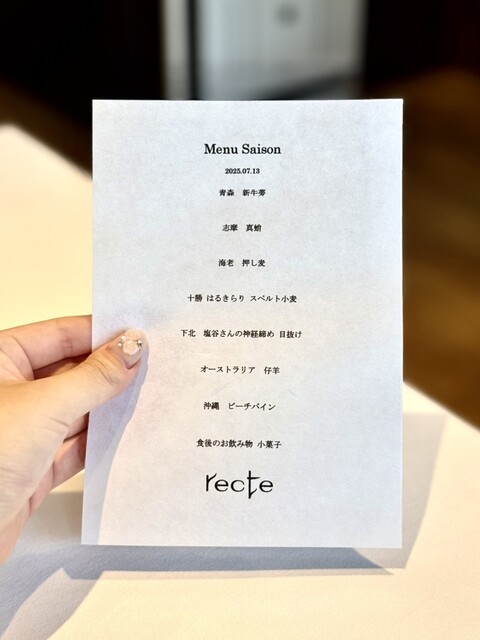 Menu Saison
2025.07.13
青森　新牛蒡
志摩　真蛤
海老　押し麦
十勝 はるきらり スペルト小麦
下北　塩谷さんの神経締め 目抜け
オーストラリア　仔羊
沖縄　ピーチパイン
食後のお飲み物 小菓子
recte